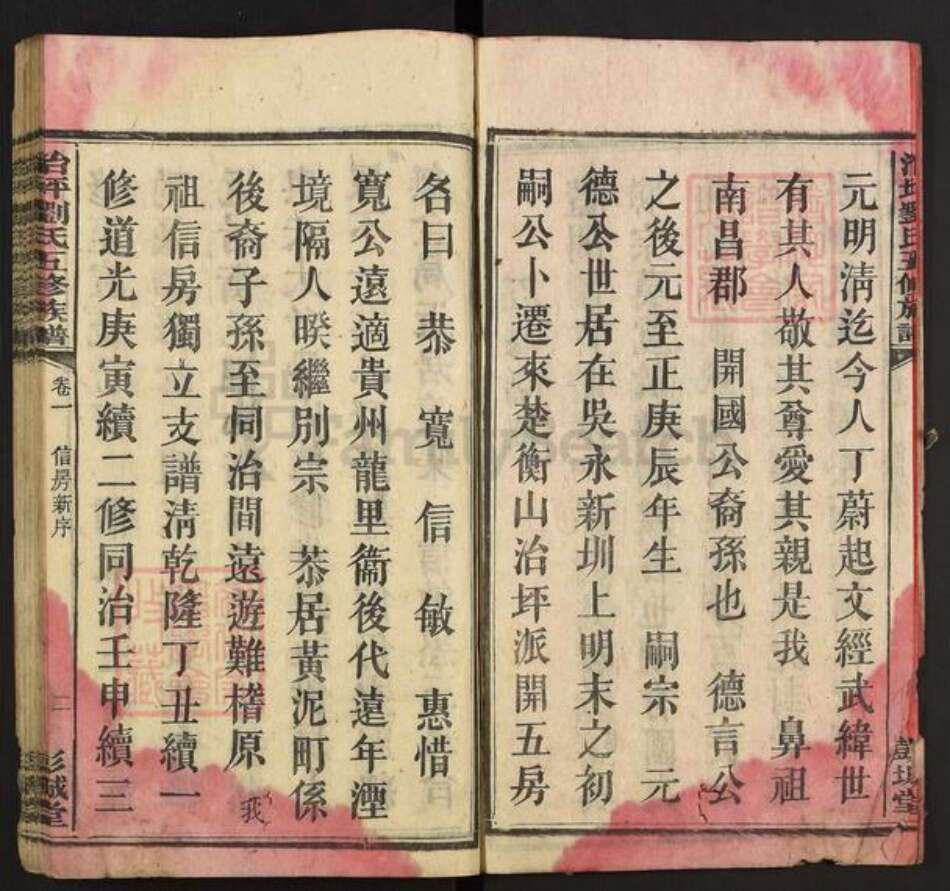 元明淸迄今人丁蔚起文經武緯世
有其人敬其尊愛其親是我 鼻祖
南昌郡 開國公裔孫也 德言公
之後元至正庚辰年生 嗣宗 元
德公世居在吳永新圳上明末之初
嗣公卜遷來楚衡山治坪派開五房
名曰恭 寬 信 敏 惠惜
寬公遠適貴州龍里衞後代遠年湮
境隔人暌繼別宗 恭居黃泥町係
後裔子孫至同治間遠遊難稽原 我
祖信房獨立支譜淸乾隆丁丑續一
修道光庚寅續二修同治壬申續三
治坪劉氏五修族譜
卷一 信房新序
二 彭城堂
FamilySearch